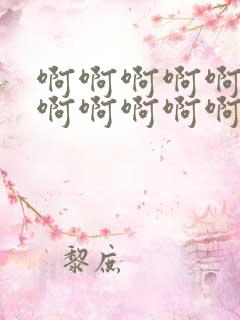 啊啊啊啊啊
啊啊啊啊啊
黎庶